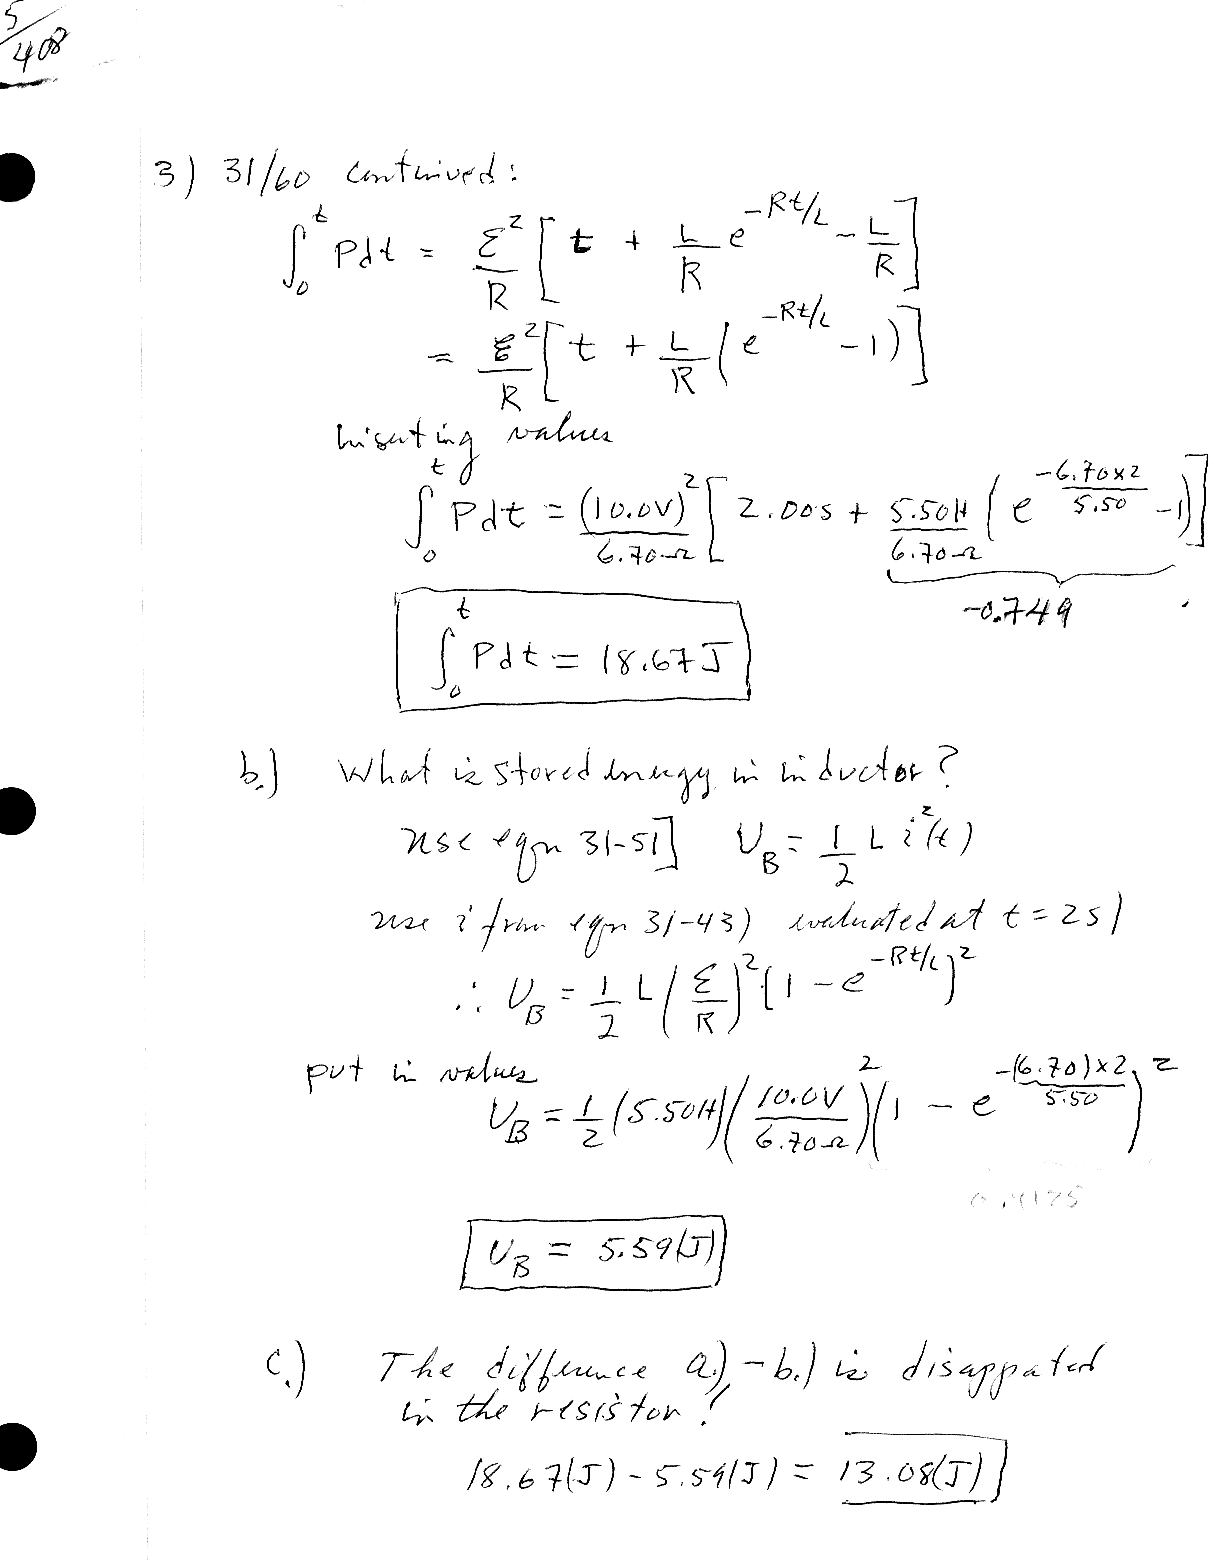 5/408
3) 31/60 continued:
∫₀ᵗ Pdt = ℰ²/R [t + L/R e^(-Rt/L) - L/R]
= ℰ²/R [t + L/R (e^(-Rt/L) - 1)]
Inserting values
∫₀ᵗ Pdt = (10.0V)²/6.70Ω [2.00s + 5.50H/6.70Ω (e^(-6.70x2/5.50) - 1)]
-0.749
∫₀ᵗ Pdt = 18.67J
b.) What is stored energy in inductor?
use eqn 31-51] U_B = 1/2 L i²(t)
use i from eqn 31-43) evaluated at t = 2s)
∴ U_B = 1/2 L (ℰ/R)² (1 - e^(-Rt/L))²
put in values
U_B = 1/2 (5.50H) (10.0V/6.70Ω)² (1 - e^(-(6.70)x2/5.50))²
U_B = 5.59(J)
c.) The difference a.) - b.) is disappated
in the resistor!
18.67(J) - 5.59(J) = 13.08(J)